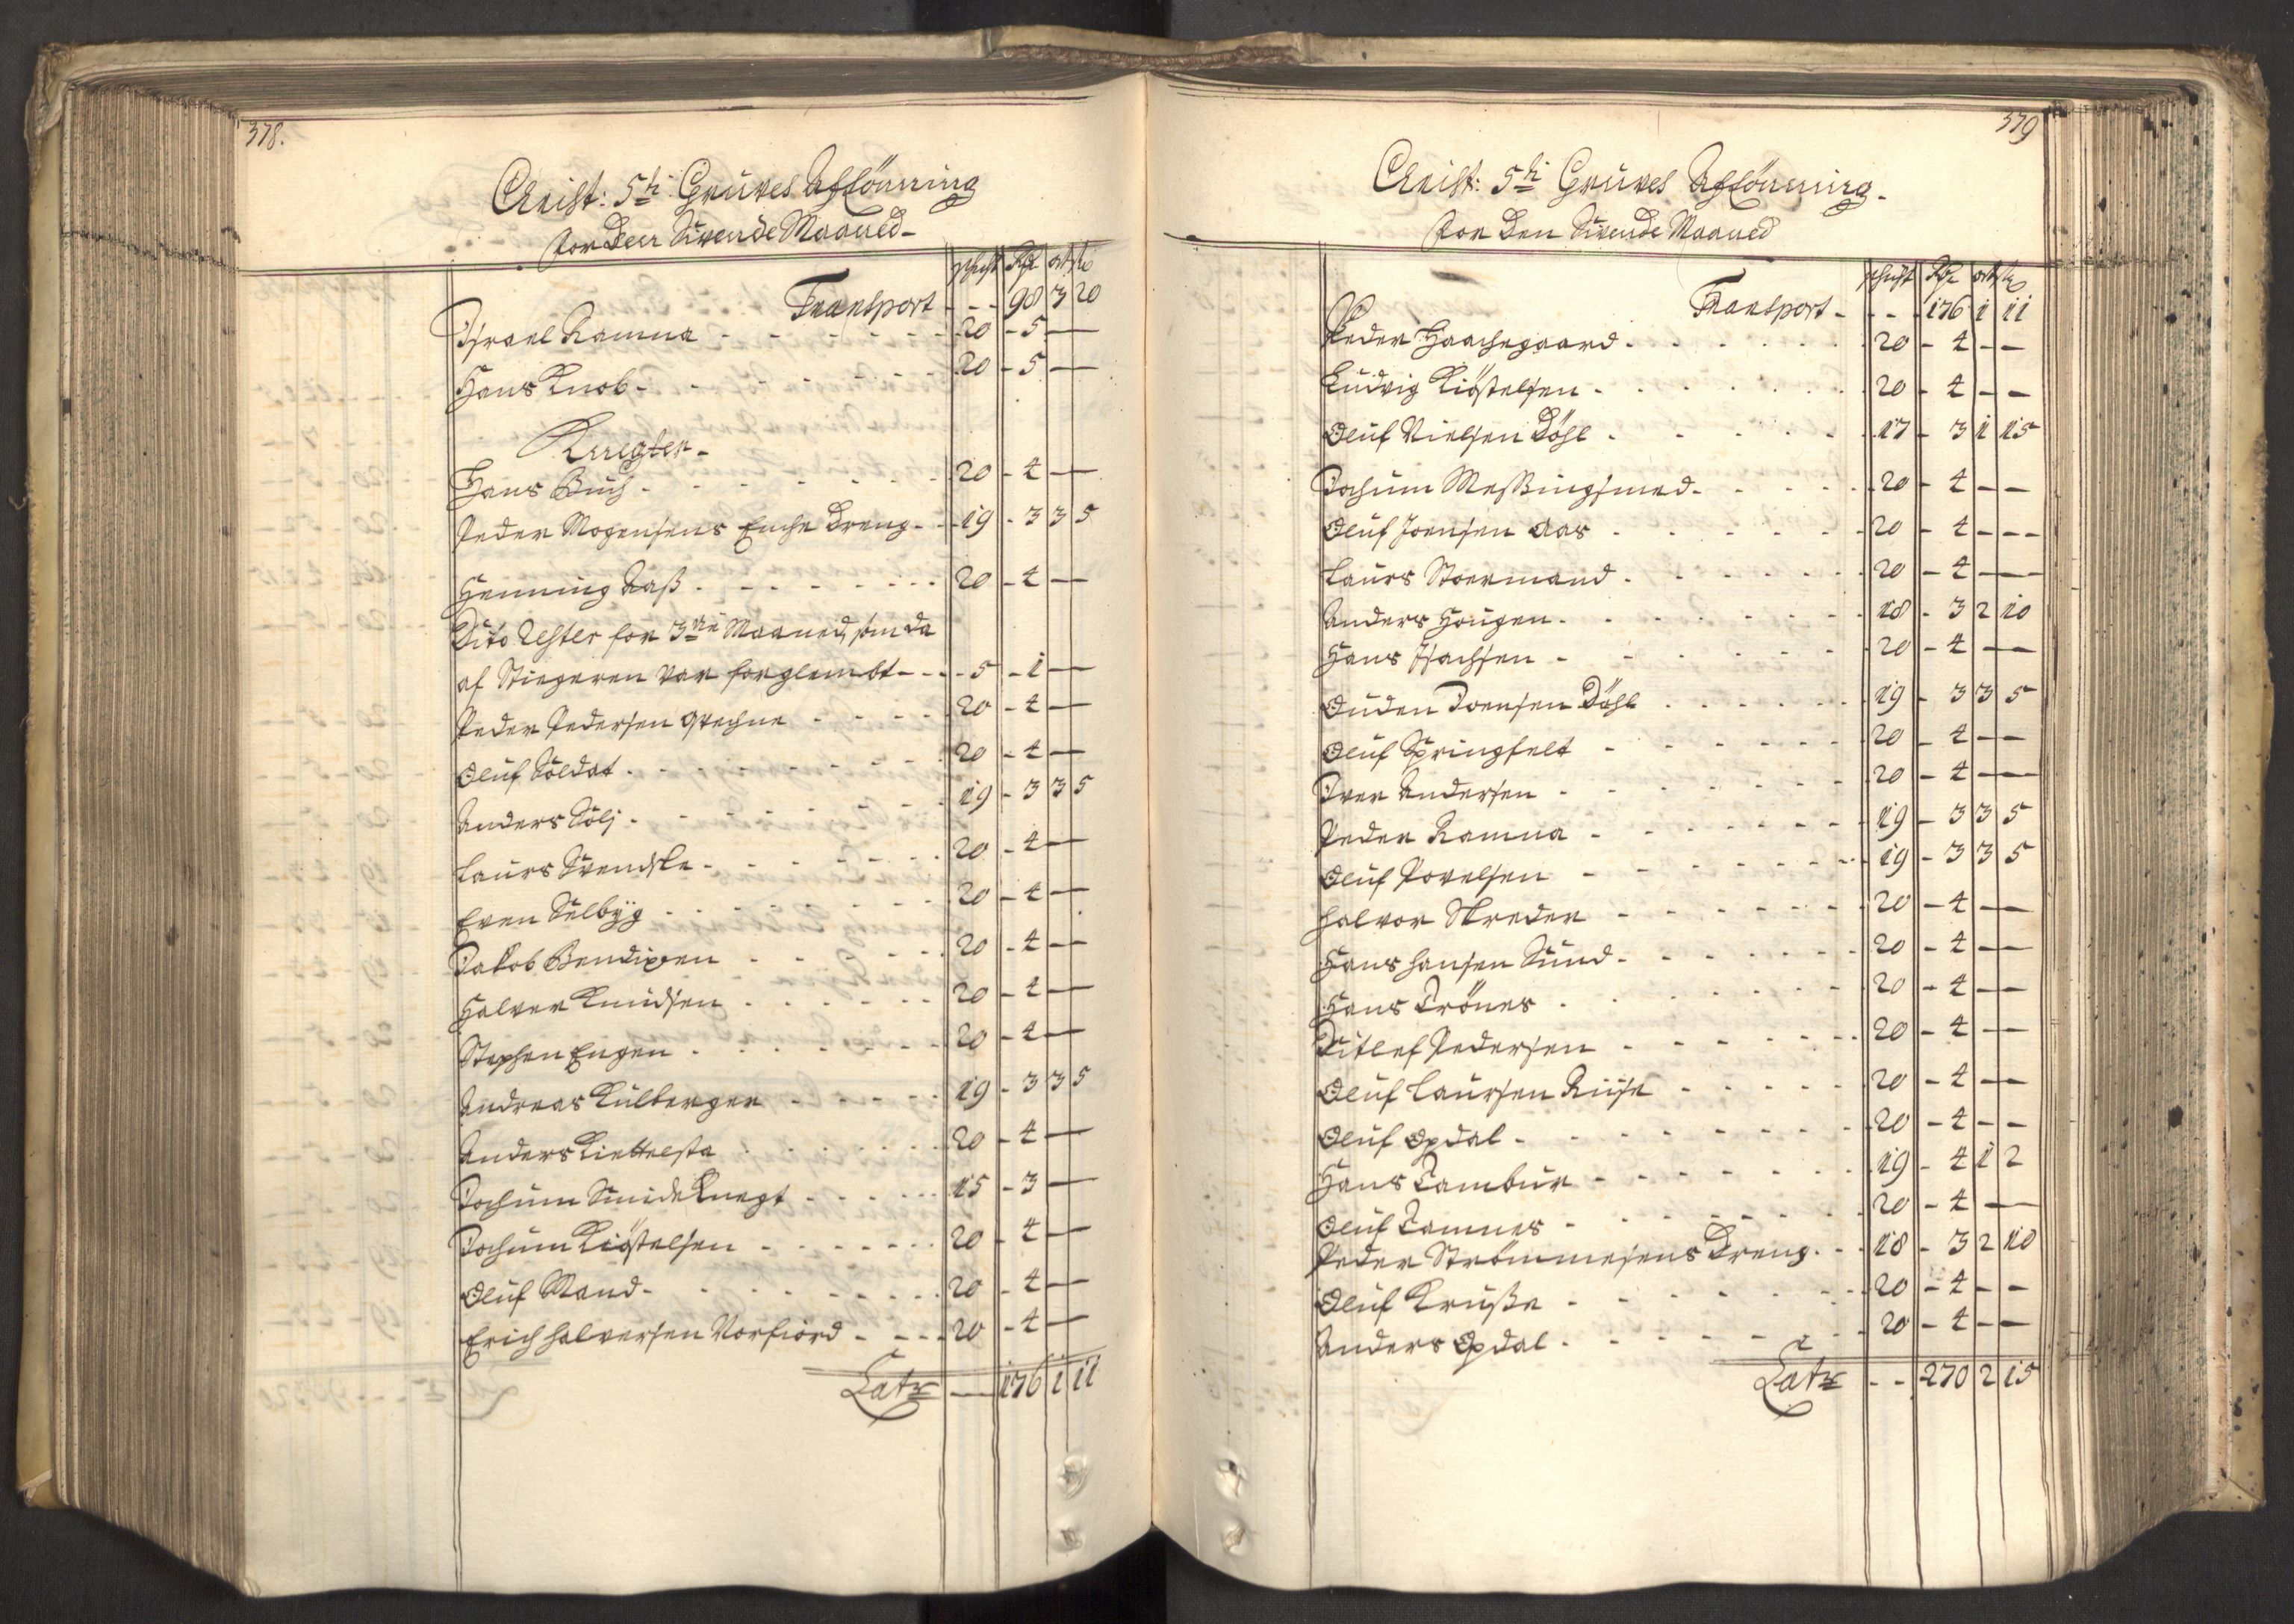 378.
Christ: 5ti Gruves Afflönning
for den Sivende Maaned
schift Rdr ort s
Transport - - - 98 3 20
Israel Ramna - - 20 - 5 —
Hans Knob - - 20 - 5 —
Knegter
Hans Buch - - 20 - 4 —
Peder Mogensens Enche Dreng - - 19 - 3 3 5
Henning Raß - - 20 - 4 —
Dito Rester for 3die Maaned, som da
af Stiegeren var forglembt - - 5 - 1 —
Peder Pedersen Qvechne - - 20 - 4 —
Oluf Soldat - - 20 - 4 —
Anders Sölj - - 19 - 3 3 5
Laurs Svendske - - 20 - 4 —
Even Selbyg - - 20 - 4 —
Jakob Bendixen - - 20 - 4 —
Halvor Knudsen - - 20 - 4 —
Stephen Engen - - 20 - 4 —
Andreas Kulberger - - 19 - 3 3 5
Anders Kiettelsta - - 20 - 4 —
Jochum Smide Knegt - - 15 - 3 —
Jochum Kiöstelsen - - 20 - 4 —
Oluf Mand - - 20 - 4 —
Erich Halversen Vorfiord - - 20 - 4 —
Latr — 176 1 11
379
Christ: 5ti Gruves Afflönning.
for den Sivende Maaned
schift Rdr ort s
Transport - - - 176 1 11
Peder Haachegaard - - 20 - 4 — —
Ludvig Kiöstelsen - - 20 - 4 — —
Oluf Nielsen Döhl - - 17 - 3 1 15
Jochum Meßingsmed - - 20 - 4 — —
Oluf Joensen Aas - - 20 - 4 — —
Laurs Stoermand - - 20 - 4 — —
Anders Hougen - - 18 - 3 2 10
Hans Isachsen - - 20 - 4 — —
Ouden Joensen Döhl - - 19 - 3 3 5
Oluf Springfelt - - 20 - 4 — —
Iver Andersen - - 20 - 4 — —
Peder Ramna - - 19 - 3 3 5
Oluf Povelsen - - 19 - 3 3 5
Halvor Skreder - - 20 - 4 — —
Hans Hansen Sund - - 20 - 4 — —
Hans Trönes - - 20 - 4 — —
Ditlef Pedersen - - 20 - 4 — —
Oluf Laursen Riise - - 20 - 4 — —
Oluf Opdal - - 20 - 4 — —
Hans Tambur - - 19 - 4 1 2
Oluf Tamnes - - 20 - 4 — —
Peder Strömmesens Dreng - - 18 - 3 2 10
Oluf Kruße - - 20 - 4 — —
Anders Opdal - - 20 - 4 — —
Latr - - 270 2 15